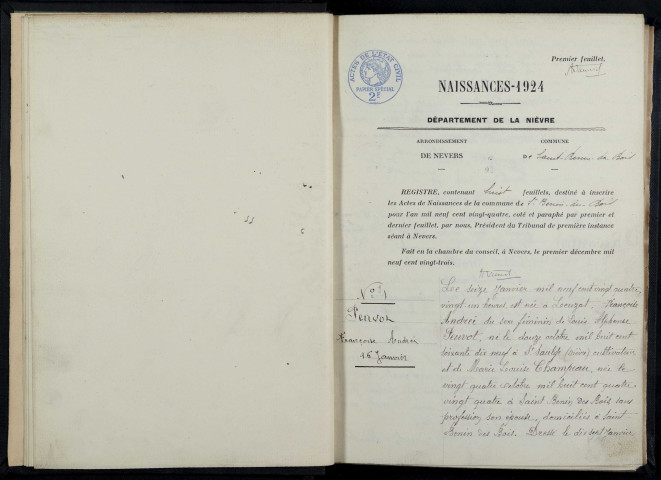 Premier feuillet,
ACTES DE L'ETAT CIVIL
PAPIER SPÉCIAL
2F
NAISSANCES-1924
DÉPARTEMENT DE LA NIÈVRE
ARRONDISSEMENT
COMMUNE
DE NEVERS
de Saint-Benin des Bois
REGISTRE, contenant huit feuillets, destiné à inscrire
les Actes de Naissances de la commune de St Benin des Bois
pour l'an mil neuf cent vingt-quatre, coté et paraphé par premier et
dernier feuillet, par nous, Président du Tribunal de première instance
séant à Nevers.
Fait en la chambre du conseil, à Nevers, le premier décembre mil
neuf cent vingt-trois.
No 1
Pervot
Françoise Andrée
16 Janvier
Le seize Janvier mil neuf cent vingt quatre,
vingt-une heures, est née à Françoise
Andrée du sexe féminin, de Louis Alphonse
Pervot, né le douze octobre mil huit cent
soixante dix neuf à St Saulge (Nièvre) cultivateur
et de Marie Louise Champeau, née le
vingt quatre octobre mil huit cent quatre
vingt quatre à Saint Benin des Bois sans
profession, son épouse, domiciliés à Saint
Benin des Bois. Dressé le dix sept Janvier